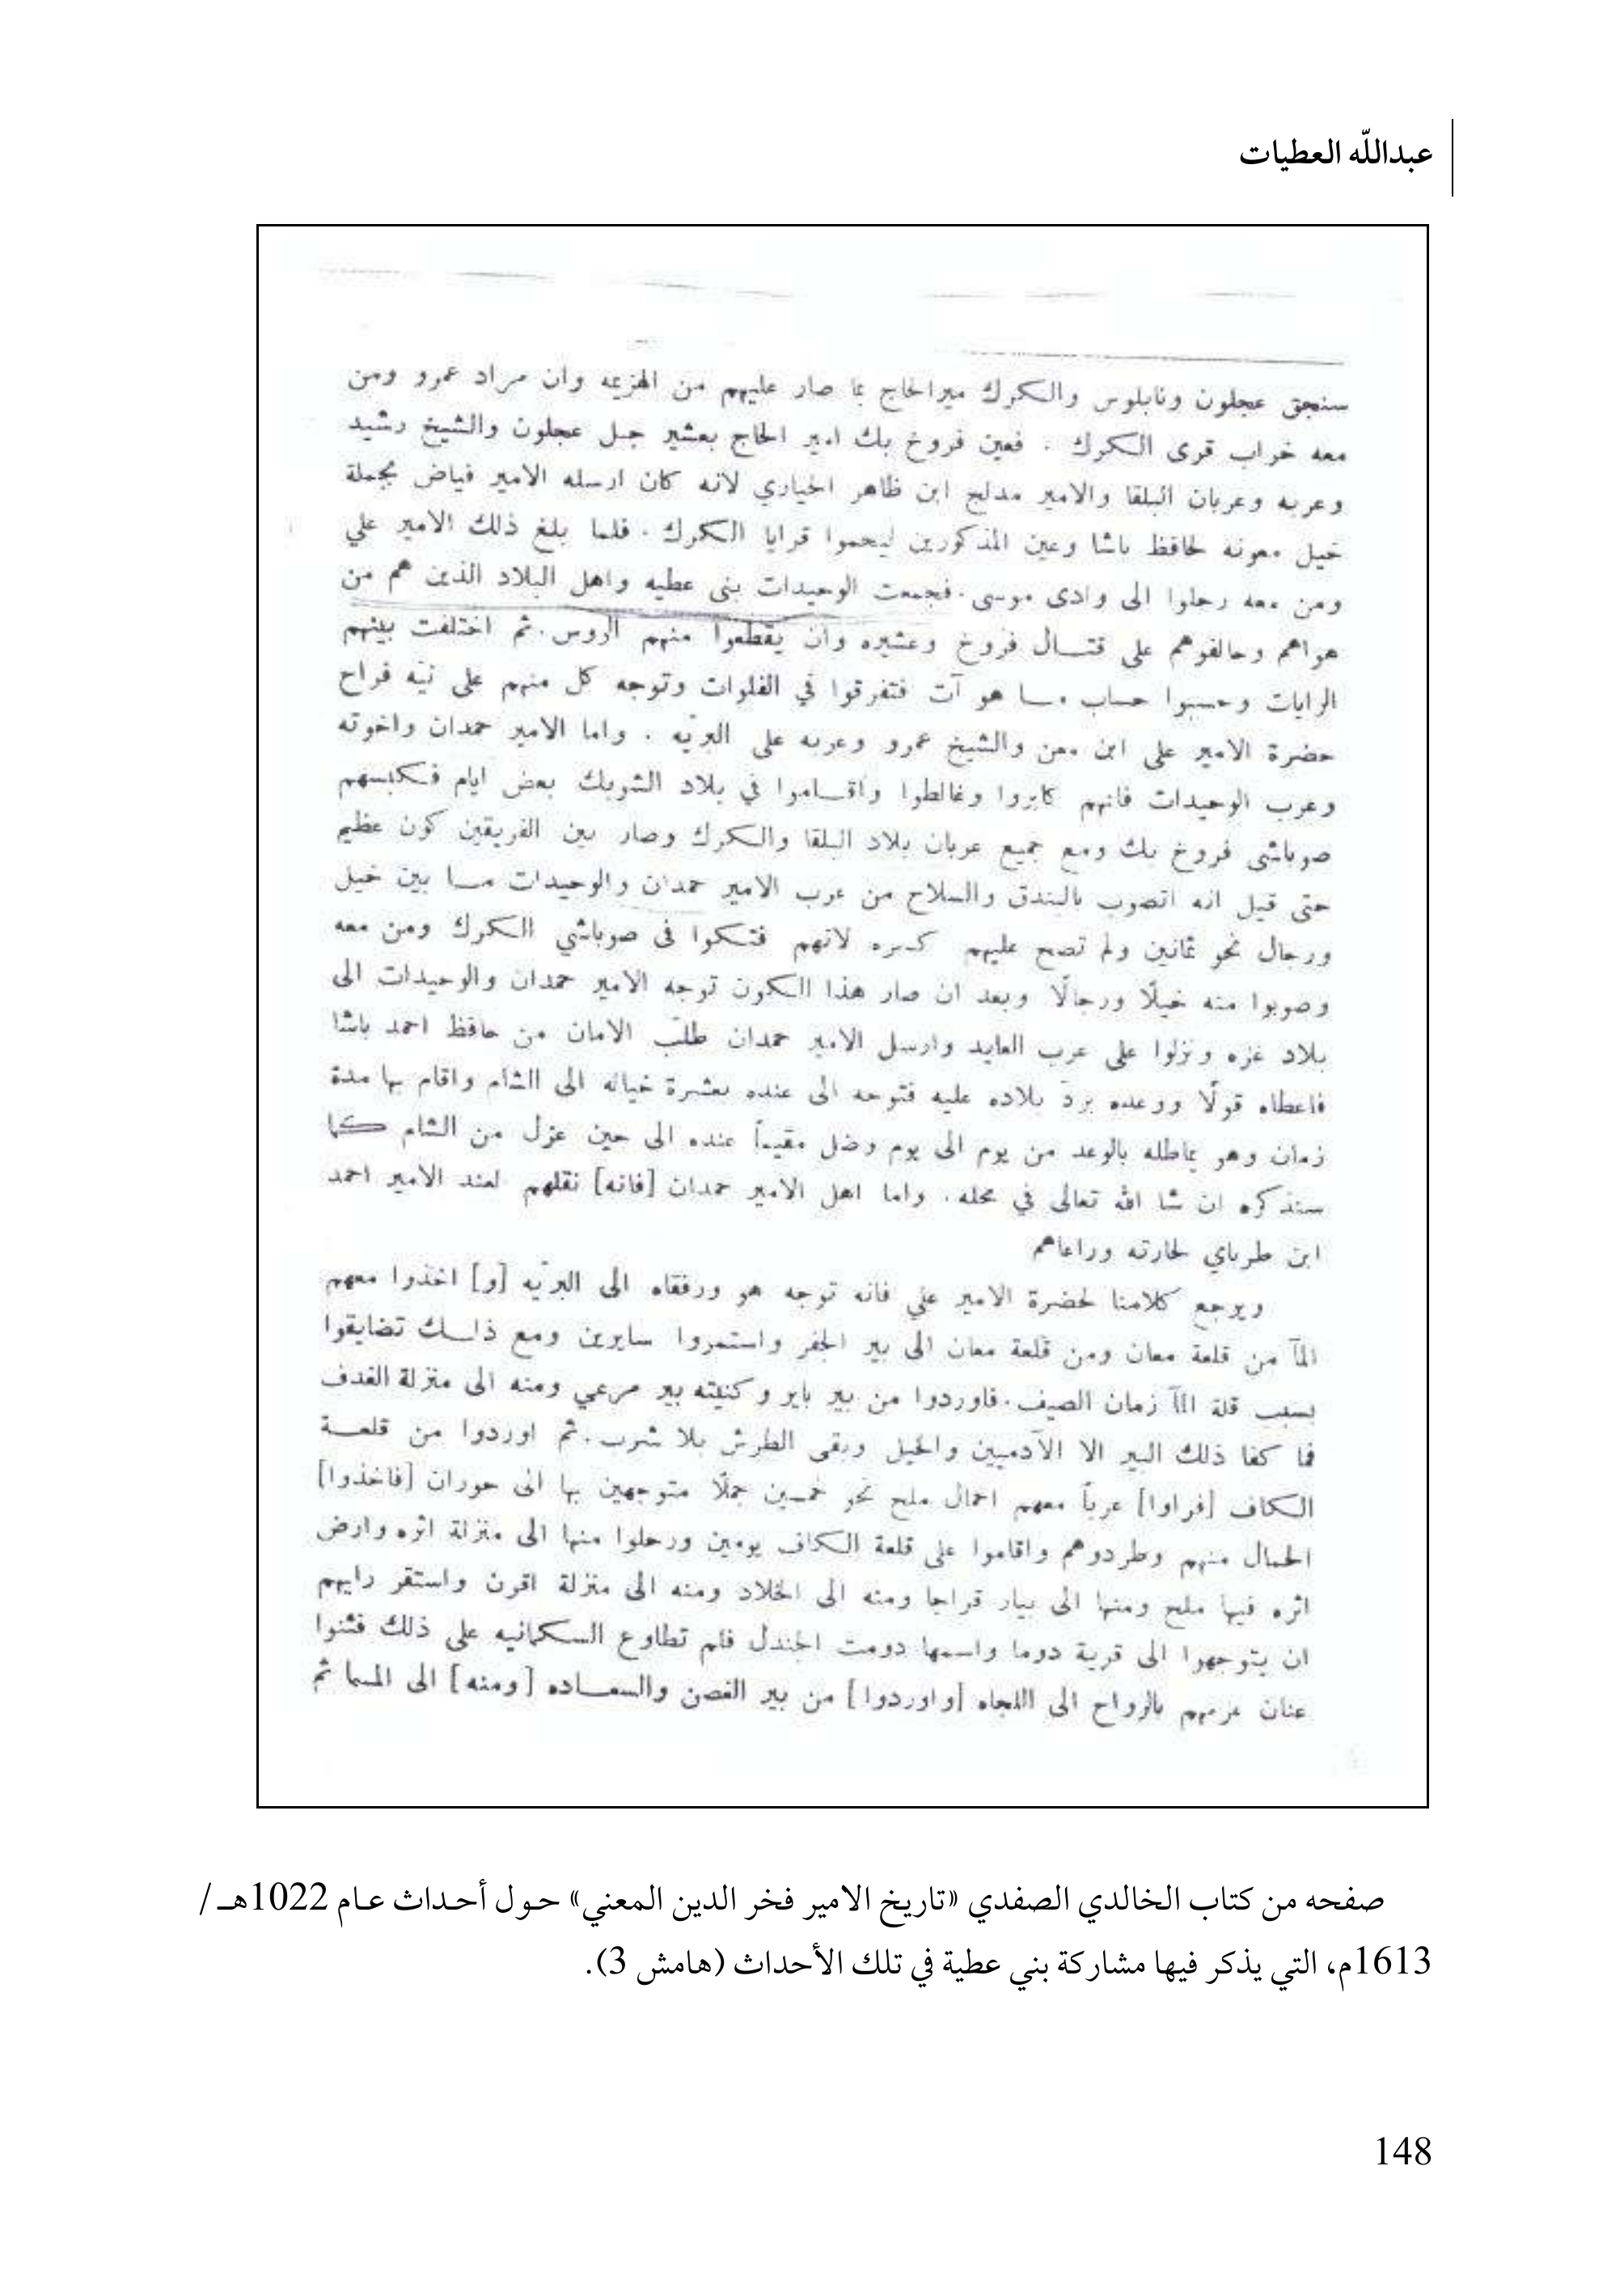 عبداللّه العطيات
سنجق عجلون ونابلوس والكرك ميرالحاج بما صار عليهم من الهزيمه وان مراد عمرو ومن
معه خراب قرى الكرك . فعين فروخ بك امير الحاج بعشير جبل عجلون والشيخ رشيد
وعربه وعربان البلقا والامير مدلج ابن ظاهر الحياري لانه كان ارسله الامير فياض بجملة
خيل معونه لحافظ باشا وعين المذكورين ليحموا قرايا الكرك . فلما بلغ ذلك الامير علي
ومن معه رحلوا الى وادى موسى . فجمعت الوحيدات بنى عطيه واهل البلاد الذين هم من
هواهم وحالفوهم على قتال فروخ وعشيره وان يقطعوا منهم الروس . ثم اختلفت بينهم
الرايات وحسبوا حساب ما هو آت فتفرقوا في الفلوات وتوجه كل منهم على نيّه فراح
حضرة الامير على ابن معن والشيخ عمرو وعربه على البريّه . واما الامير حمدان واخوته
وعرب الوحيدات فانهم كابروا وغالطوا واقاموا في بلاد الشوبك بعض ايام فكبسهم
صوباشى فروخ بك ومع جميع عربان بلاد البلقا والكرك وصار بين الفريقين كون عظيم
حتى قيل انه اتصوب بالبندق والسلاح من عرب الامير حمدان والوحيدات ما بين خيل
ورجال نحو ثمانين ولم تصح عليهم كسره لانهم فتكوا فى صوباشي الكرك ومن معه
وصوبوا منه خيلًا ورجالًا وبعد ان صار هذا الكون توجه الامير حمدان والوحيدات الى
بلاد غزه ونزلوا على عرب العايد وارسل الامير حمدان طلب الامان من حافظ احمد باشا
فاعطاه قولًا ووعده بردّ بلاده عليه فتوجه الى عنده بعشرة خياله الى الشام واقام بها مدة
زمان وهو يماطله بالوعد من يوم الى يوم وضل مقيماً عنده الى حين عزل من الشام كما
سنذكره ان شا الله تعالى في محله . واما اهل الامير حمدان [فانه] نقلهم لعند الامير احمد
ابن طرباي لحارته وراعاهم
ويرجع كلامنا لحضرة الامير علي فانه توجه هو ورفقاه الى البريّه [و] اخذوا معهم
المآ من قلعة معان ومن قلعة معان الى بير الجفر واستمروا سايرين ومع ذالك تضايقوا
بسبب قلة المآ زمان الصيف . فاوردوا من بير باير وكنيته بير مرعي ومنه الى منزلة الغدف
فما كفا ذلك البير الا الآدميين والخيل وبقى الطرش بلا شرب . ثم اوردوا من قلعة
الكاف [فراوا] عرباً معهم احمال ملح نحو خمسين جملًا متوجهين بها الى حوران [فاخذوا]
الحمال منهم وطردوهم واقاموا على قلعة الكاف يومين ورحلوا منها الى منزلة اثره وارض
اثره فيها ملح ومنها الى بيار قراجا ومنه الى الخلاد ومنه الى منزلة اقرن واستقر رايهم
ان يتوجهوا الى قرية دوما واسمها دومت الجندل فلم تطاوع السكمانيه على ذلك فثنوا
عنان عزمهم بالرواح الى اللجاه [واوردوا] من بير الغصن والسعاده [ومنه] الى المسما ثم
صفحه من كتاب الخالدي الصفدي «تاريخ الامير فخر الدين المعني» حول أحداث عام 1022هـ /
1613م، التي يذكر فيها مشاركة بني عطية في تلك الأحداث (هامش 3).
148